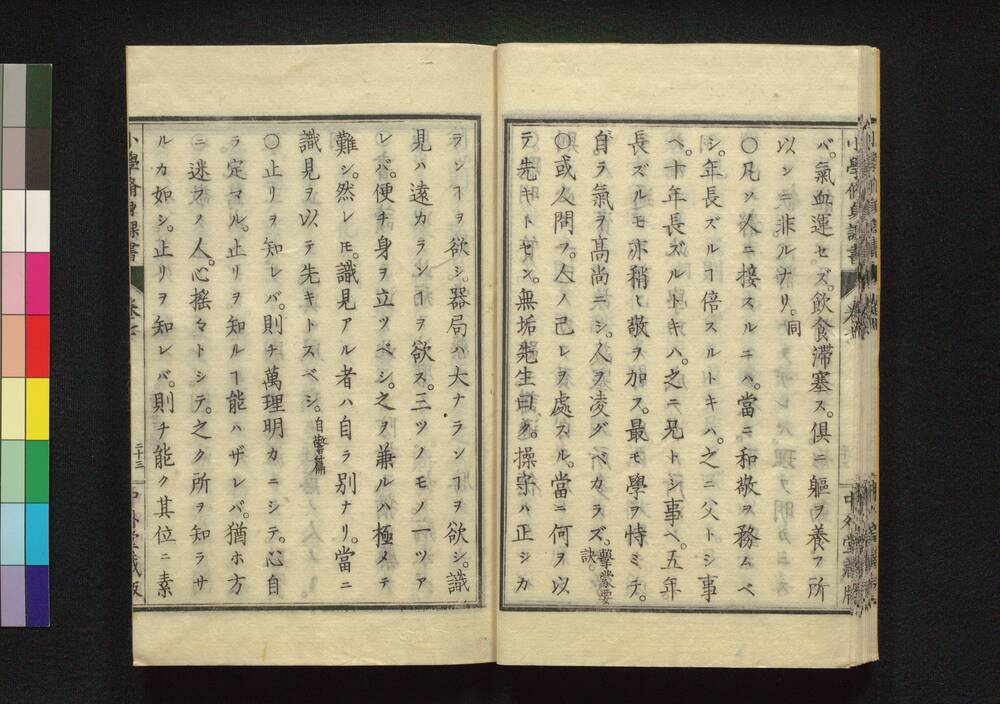 バ。氣血運セズ。飮食滯塞ス。俱ニ軀ヲ養フ所
以ンニ非ルナリ。同
〇凡ソ人ニ接スルニハ。當ニ和敬ヲ務ムベ
シ。年長ズルヿ倍スルトキハ。之ニ父トシ事
ヘ。十年長ズルトキハ。之ニ兄トシ事ヘ。五年
長ズルモ亦稍〻敬ヲ加ス。最モ學ヲ恃ミテ。
自ラ氣ヲ高尚ニシ。人ヲ凌グベカラズ。擊蒙要訣。
〇或人問フ。人ノ己レヲ處スル。當ニ何ヲ以
テ先キトセン。無垢先生曰ク。操守ハ正シカ
ランヿヲ欲シ。器局ハ大ナランヿヲ欲シ。識
見ハ遠カランヿヲ欲ス。三ツノモノ一ツア
レバ。便チ身ヲ立ツベシ。之ヲ兼ルハ極メテ
難シ。然レ𪜈。識見アル者ハ自ラ別ナリ。當ニ
識見ヲ以テ先キトスベシ。自警篇
〇止リヲ知レバ。則チ萬理明カニシテ。心自
ラ定マル。止リヲ知ルヿ能ハザレバ。猶ホ方
ニ迷フノ人。心搖々トシテ。之ク所ヲ知ラサ
ルカ如シ。止リヲ知レバ。則チ能ク其位ニ素
小學脩身課書
卷七
二十三
中外堂藏版